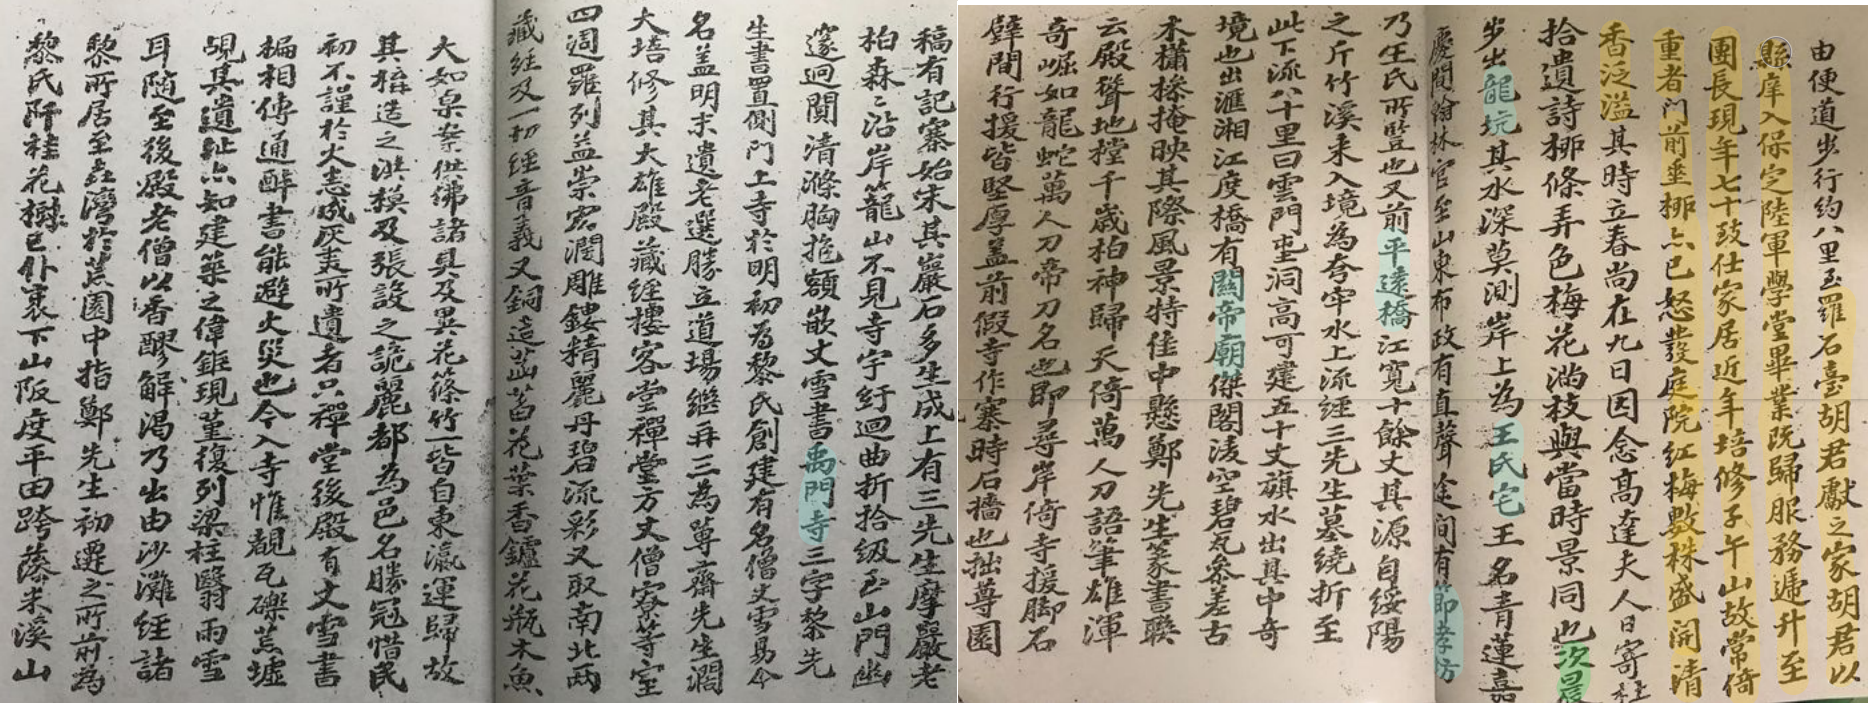 由便道步行約八里至羅石臺胡君獻之家胡君以
縣庠入保定陸軍學堂畢業既歸服務遞升至
團長現年七十致仕家居近年培修子午山故常倚
重者門前垂柳亦已怒發庭院紅梅數株盛開清
香泛溢其時立春尚在九日因念高達夫人日寄杜
拾遺詩柳條弄色梅花滿枝與當時景同也次晨
步出龍坑其水深莫測岸上為王氏宅王名青蓮嘉
慶間翰林官至山東布政有直聲途間有節孝坊
乃王氏所豎也又前平遠橋江寬十餘丈其源自綏陽
之斤竹溪來入境為夸牢水上流經三先生墓繞折至
此下流八十里曰雲門屯洞高可建五十丈旗水出其中奇
境也出滙湘江度橋有關帝廟傑閣凌空碧瓦參差古
木掩映其際風景特佳中懸鄭先生篆書聯
云殿聳地樘千歲柏神歸天倚萬人刀語筆雄渾
奇崛如龍蛇萬人刀帝刀名也即尋岸倚寺援脚石
壁間行援皆堅厚蓋前假寺作寨時石牆也拙尊園
稿有記寨始宋其巖石多生成上有三先生摩巖老
柏森々沿岸籠山不見寺宇紆迴曲折拾級至山門幽
邃迥閒清滌胸抱額嵌丈雪書禹門寺三字黎先
生書置側門上寺於明初為黎氏創建有名僧丈雪易今
名蓋明末遺老選勝立道場繼再三為蓴齋先生濶
大培修其大雄殿藏經樓客堂禪堂方丈僧寮等室
四週羅列益崇宏濶雕鏤精麗丹碧流彩又取南北兩
藏經及一切經音義又銅造菡萏花葉香鑪花瓶木魚
大如桌案供佛諸具及異花篠竹皆自東瀛運歸故
其構造之洪模及張設之詭麗都為邑名勝冠惜民
初不謹於火悉成灰燼所遺者只禪堂後殿有丈雪書
楄相傳通醉書能避火災也今入寺惟覩瓦礫荒墟
覘其遺址亦知建築之偉鉅現菫復列梁柱翳雨雪
耳隨至後殿老僧以香醪解渴乃出由沙灘經諸
黎所居至垚灣於蔗園中指鄭先生初遷之所前為
黎氏阡桂花樹已仆裏下山阪度平田跨蔡米溪山